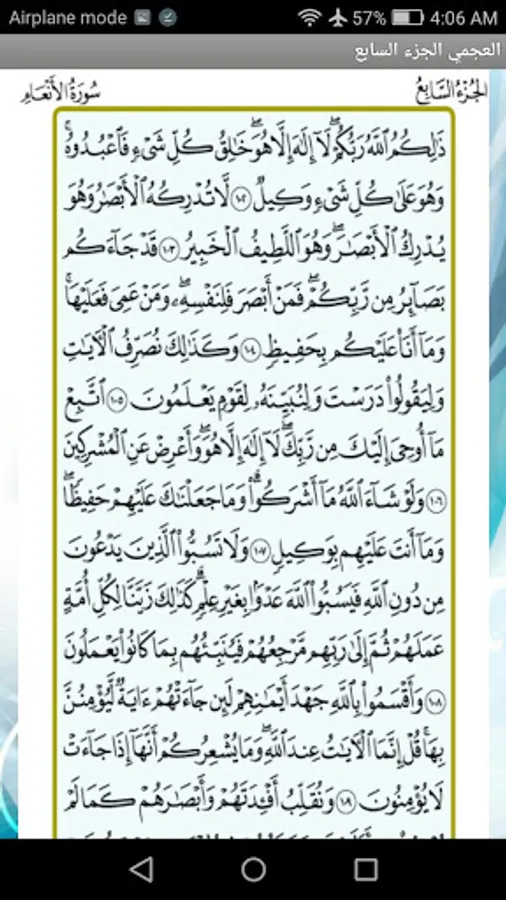 Airplane mode 57% 4:06 AM
العجمي الجزء السابع
الجُزْءُ السَّابِعُ سُورَةُ الأَنْعَامِ
ذَٰلِكُمُ ٱللَّهُ رَبُّكُمْ ۖ لَآ إِلَٰهَ إِلَّا هُوَ ۖ خَٰلِقُ كُلِّ شَىْءٍ فَٱعْبُدُوهُ ۚ
وَهُوَ عَلَىٰ كُلِّ شَىْءٍ وَكِيلٌ ١٠٢ لَّا تُدْرِكُهُ ٱلْأَبْصَٰرُ وَهُوَ
يُدْرِكُ ٱلْأَبْصَٰرَ ۖ وَهُوَ ٱللَّطِيفُ ٱلْخَبِيرُ ١٠٣ قَدْ جَآءَكُم
بَصَآئِرُ مِن رَّبِّكُمْ ۖ فَمَنْ أَبْصَرَ فَلِنَفْسِهِۦ ۖ وَمَنْ عَمِىَ فَعَلَيْهَا ۚ
وَمَآ أَنَا۠ عَلَيْكُم بِحَفِيظٍ ١٠٤ وَكَذَٰلِكَ نُصَرِّفُ ٱلْءَايَٰتِ
وَلِيَقُولُوا۟ دَرَسْتَ وَلِنُبَيِّنَهُۥ لِقَوْمٍ يَعْلَمُونَ ١٠٥ ٱتَّبِعْ
مَآ أُوحِىَ إِلَيْكَ مِن رَّبِّكَ ۖ لَآ إِلَٰهَ إِلَّا هُوَ ۖ وَأَعْرِضْ عَنِ ٱلْمُشْرِكِينَ
١٠٦ وَلَوْ شَآءَ ٱللَّهُ مَآ أَشْرَكُوا۟ ۗ وَمَا جَعَلْنَٰكَ عَلَيْهِمْ حَفِيظًا ۖ
وَمَآ أَنتَ عَلَيْهِم بِوَكِيلٍ ١٠٧ وَلَا تَسُبُّوا۟ ٱلَّذِينَ يَدْعُونَ
مِن دُونِ ٱللَّهِ فَيَسُبُّوا۟ ٱللَّهَ عَدْوًۢا بِغَيْرِ عِلْمٍ ۗ كَذَٰلِكَ زَيَّنَّا لِكُلِّ أُمَّةٍ
عَمَلَهُمْ ثُمَّ إِلَىٰ رَبِّهِم مَّرْجِعُهُمْ فَيُنَبِّئُهُم بِمَا كَانُوا۟ يَعْمَلُونَ
١٠٨ وَأَقْسَمُوا۟ بِٱللَّهِ جَهْدَ أَيْمَٰنِهِمْ لَئِن جَآءَتْهُمْ ءَايَةٌ لَّيُؤْمِنُنَّ
بِهَا ۚ قُلْ إِنَّمَا ٱلْءَايَٰتُ عِندَ ٱللَّهِ ۖ وَمَا يُشْعِرُكُمْ أَنَّهَآ إِذَا جَآءَتْ
لَا يُؤْمِنُونَ ١٠٩ وَنُقَلِّبُ أَفْـِٔدَتَهُمْ وَأَبْصَٰرَهُمْ كَمَا لَمْ